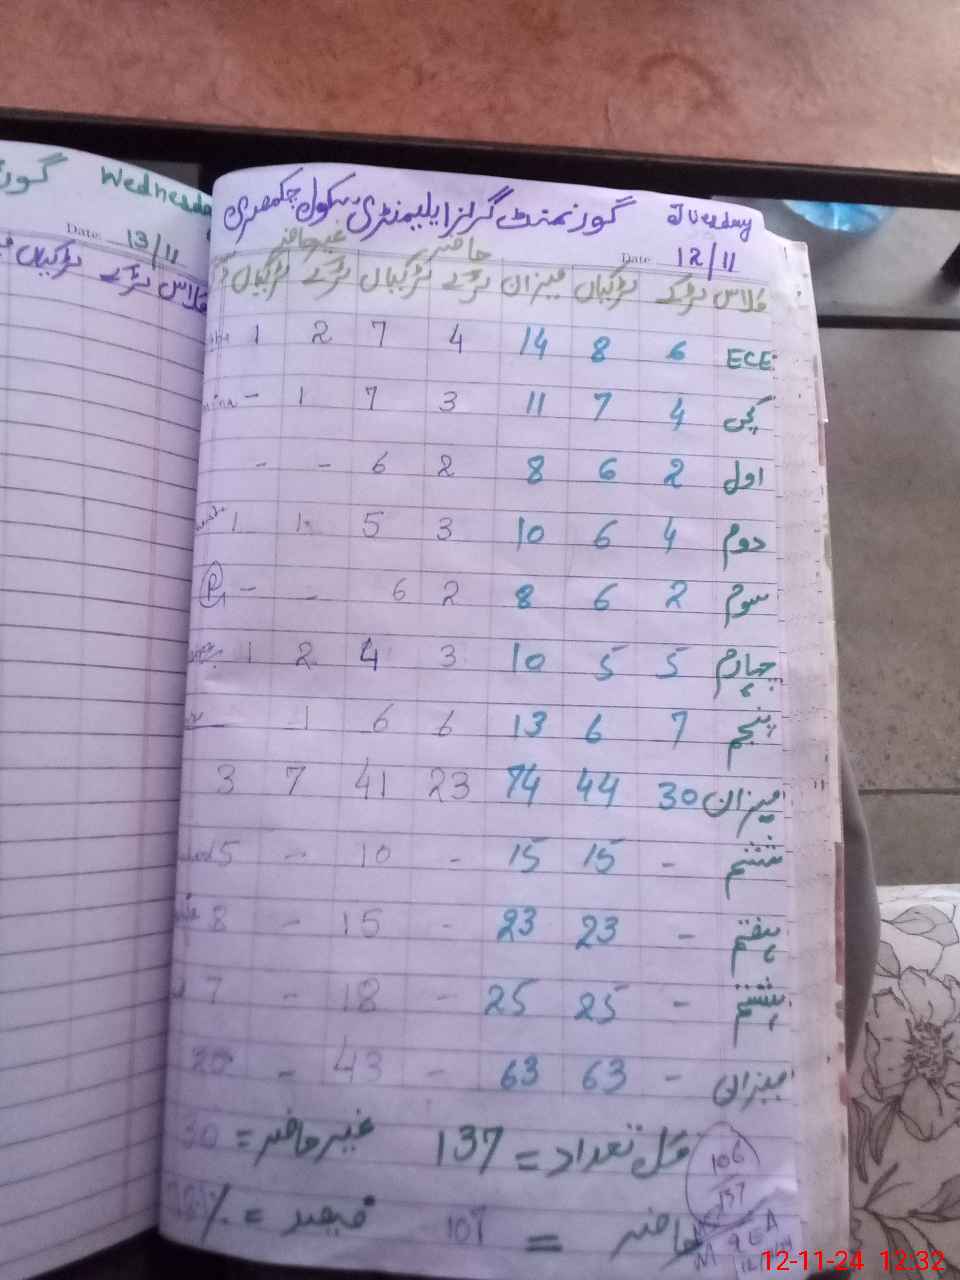 گورنمنٹ گرلز ایلیمنٹری سکول چکمصری Tuesday
Date 12/11
حاضر غیر حاضر
کلاس لڑکے لڑکیاں میزان لڑکے لڑکیاں لڑکے لڑکیاں
ECE 6 8 14 4 7 2 1
کچی 4 7 11 3 7 1 -
اول 2 6 8 2 6 - -
دوم 4 6 10 3 5 1 1
سوم 2 6 8 2 6 - - P
چہارم 5 5 10 3 4 2 1
پنجم 7 6 13 6 6 1
میزان 30 44 74 23 41 7 3
ششم - 15 15 - 10 - 5
ہفتم - 23 23 - 15 - 8
ہشتم - 25 25 - 18 - 7
میزان - 63 63 - 43 - 20
کل تعداد = 137 غیر حاضر = 30
حاضر = 107 فیصد = %
106
137
M E A
Wednesday
Date: 13/11
کلاس لڑکے لڑکیاں
12-11-24 12:32